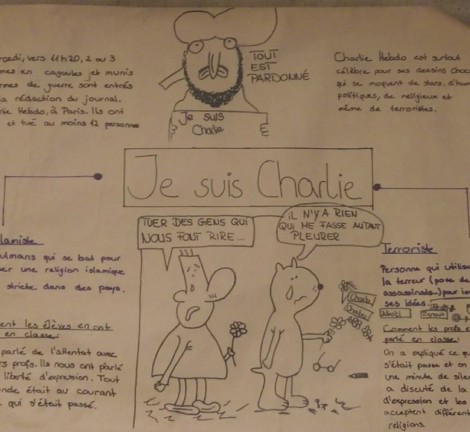 redi, vers 11h20, 2 ou 3
mes en cagoules et munis
rmes de guerre sont entrés
la rédaction du journal.
rlie Hebdo, à Paris. Ils ont
et tué au moins 12 personnes
TOUT
EST
PARDONNÉ
Je suis
Charlie
Charlie Hebdo est surtout
célèbre pour ses dessins
qui se moquent de stars,
politiques, de religieux et
même de terroristes.
Je suis Charlie
TUER DES GENS QUI
NOUS FONT RIRE...
IL N'Y A RIEN
QUI ME FASSE AUTANT
PLEURER
lamiste
ulmans qui se bat pour
er une religion islamique
stricte dans des pays.
ent les élèves en ont
en classe:
parlé de l'attentat avec
rs profs. Ils nous ont parlé
liberté d'expression. Tout
nde était au courant
qui s'était passé.
Terroriste
Personne qui utilise
la terreur (pose de
assassinats..) pour
ses idées.
Charb
Comment les profs
parlé en classe:
On a expliqué ce qu
s'était passé et on
une minute de sile
a discuté de la
d'expression et les
acceptent différen
religions.